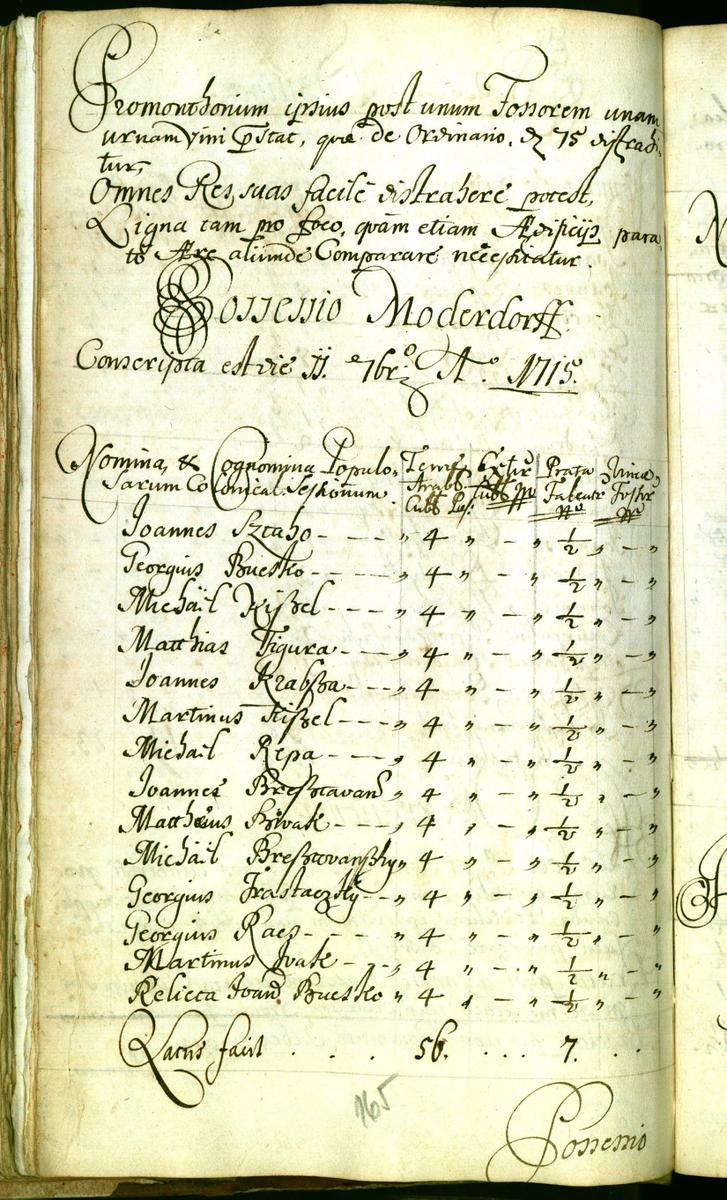 Promonthorium ipsius post unum Fossorem unam
urnam Vini pstat, quæ de Ordinario, d 75 distrahi-
tur,
Omnes Res suas facilè distrahere potest,
Ligna tam pro foco, quàm etiam Ædificijs para-
to Ære aliunde Comparare necessitatur.
Possessio Moderdorff
Conscripta est die 11. 7br A.º 1715.
Nomina, & Cognomina Populo- Terræ Extir Prata Vinea
sarum Colonical: Sessionum Arabl Cubb Falcatr Fossr
Cubb
Joannes Sztaho - - - " 4 " - " 1/2 " - "
Georgius Buesko - - - " 4 " - " 1/2 " - "
Michàil Kißel - - - " 4 " - " 1/2 " - "
Matthias Figura - - - " 4 " - " 1/2 " - "
Joannes Krabßa - - - " 4 " - " 1/2 " - "
Martinus Kißel - - - " 4 " - " 1/2 " - "
Michàil Repa - - - " 4 " - " 1/2 " - "
Joannes Breßtavan " 4 " - " 1/2 " - "
Matthæus Sivak - - - " 4 " - " 1/2 " - "
Michàil Breßtovanßky " 4 " - " 1/2 " - "
Georgius Hrastaczky - - " 4 " - " 1/2 " - "
Georgius Racs - - - " 4 " - " 1/2 " - "
Martinus Ivak - - - " 4 " - " 1/2 " - "
Relicta Joan Buesko " 4 " - " 1/2 " - "
Latus facit . . . . 56. . . . 7. . .
165
Possessio